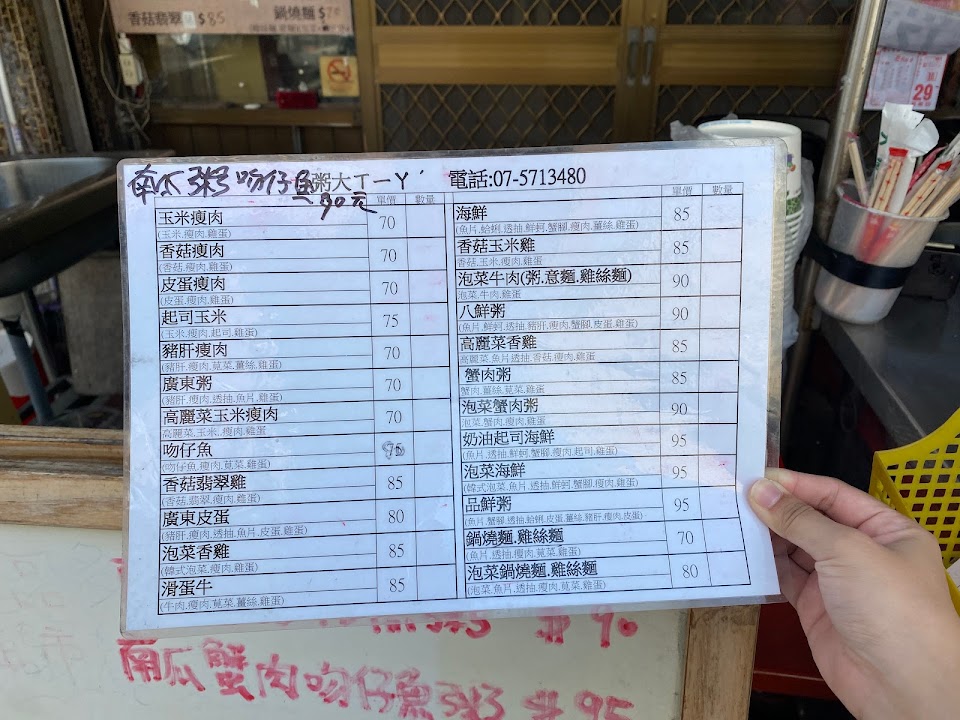 香菇翡翠 $85
鍋燒麵 $70
29
南瓜粥吻仔魚 90元
粥大丁一丫ˊ 電話:07-5713480
單價 數量
玉米瘦肉 70
(玉米.瘦肉.雞蛋)
香菇瘦肉 70
(香菇.瘦肉.雞蛋)
皮蛋瘦肉 70
(皮蛋.瘦肉.雞蛋)
起司玉米 75
(玉米.瘦肉.起司.雞蛋)
豬肝瘦肉 70
(豬肝.瘦肉.莧菜.薑絲.雞蛋)
廣東粥 70
(豬肝.瘦肉.透抽.魚片.雞蛋)
高麗菜玉米瘦肉 70
高麗菜.玉米.,瘦肉.雞蛋
吻仔魚 90
(吻仔魚.瘦肉.莧菜.雞蛋)
香菇翡翠雞 85
(香菇.翡翠.瘦肉.雞蛋)
廣東皮蛋 80
(豬肝.瘦肉.透抽.魚片.皮蛋.雞蛋)
泡菜香雞 85
(韓式泡菜.瘦肉.雞蛋)
滑蛋牛 85
(牛肉.瘦肉.莧菜.薑絲.雞蛋)
單價 數量
海鮮 85
(魚片.蛤蜊.透抽.鮮蚵.蟹腳.瘦肉.薑絲.雞蛋)
香菇玉米雞 85
香菇.玉米.瘦肉.雞蛋
泡菜牛肉(粥.意麵.雞絲麵) 90
泡菜.牛肉.雞蛋
八鮮粥 90
(魚片.鮮蚵.透抽.豬肝.瘦肉.蟹腳.皮蛋.雞蛋)
高麗菜香雞 85
高麗菜.魚片透抽.香菇.瘦肉.雞蛋
蟹肉粥 85
蟹肉.薑絲.莧菜.雞蛋
泡菜蟹肉粥 90
泡菜.蟹肉.瘦肉.雞蛋
奶油起司海鮮 95
(魚片.透抽.鮮蚵.蟹腳.瘦肉.起司.雞蛋)
泡菜海鮮 95
(韓式泡菜.魚片.透抽.鮮蚵.蟹腳.瘦肉.雞蛋)
品鮮粥 95
(魚片.蟹腳.透抽.蛤蜊.皮蛋.薑絲.豬肝.瘦肉.皮蛋)
鍋燒麵.雞絲麵 70
(魚片.透抽.瘦肉.莧菜.雞蛋)
泡菜鍋燒麵.雞絲麵 80
(泡菜.魚片.透抽.瘦肉.莧菜.雞蛋)
粥 $90
南瓜蟹肉吻仔魚粥 $95